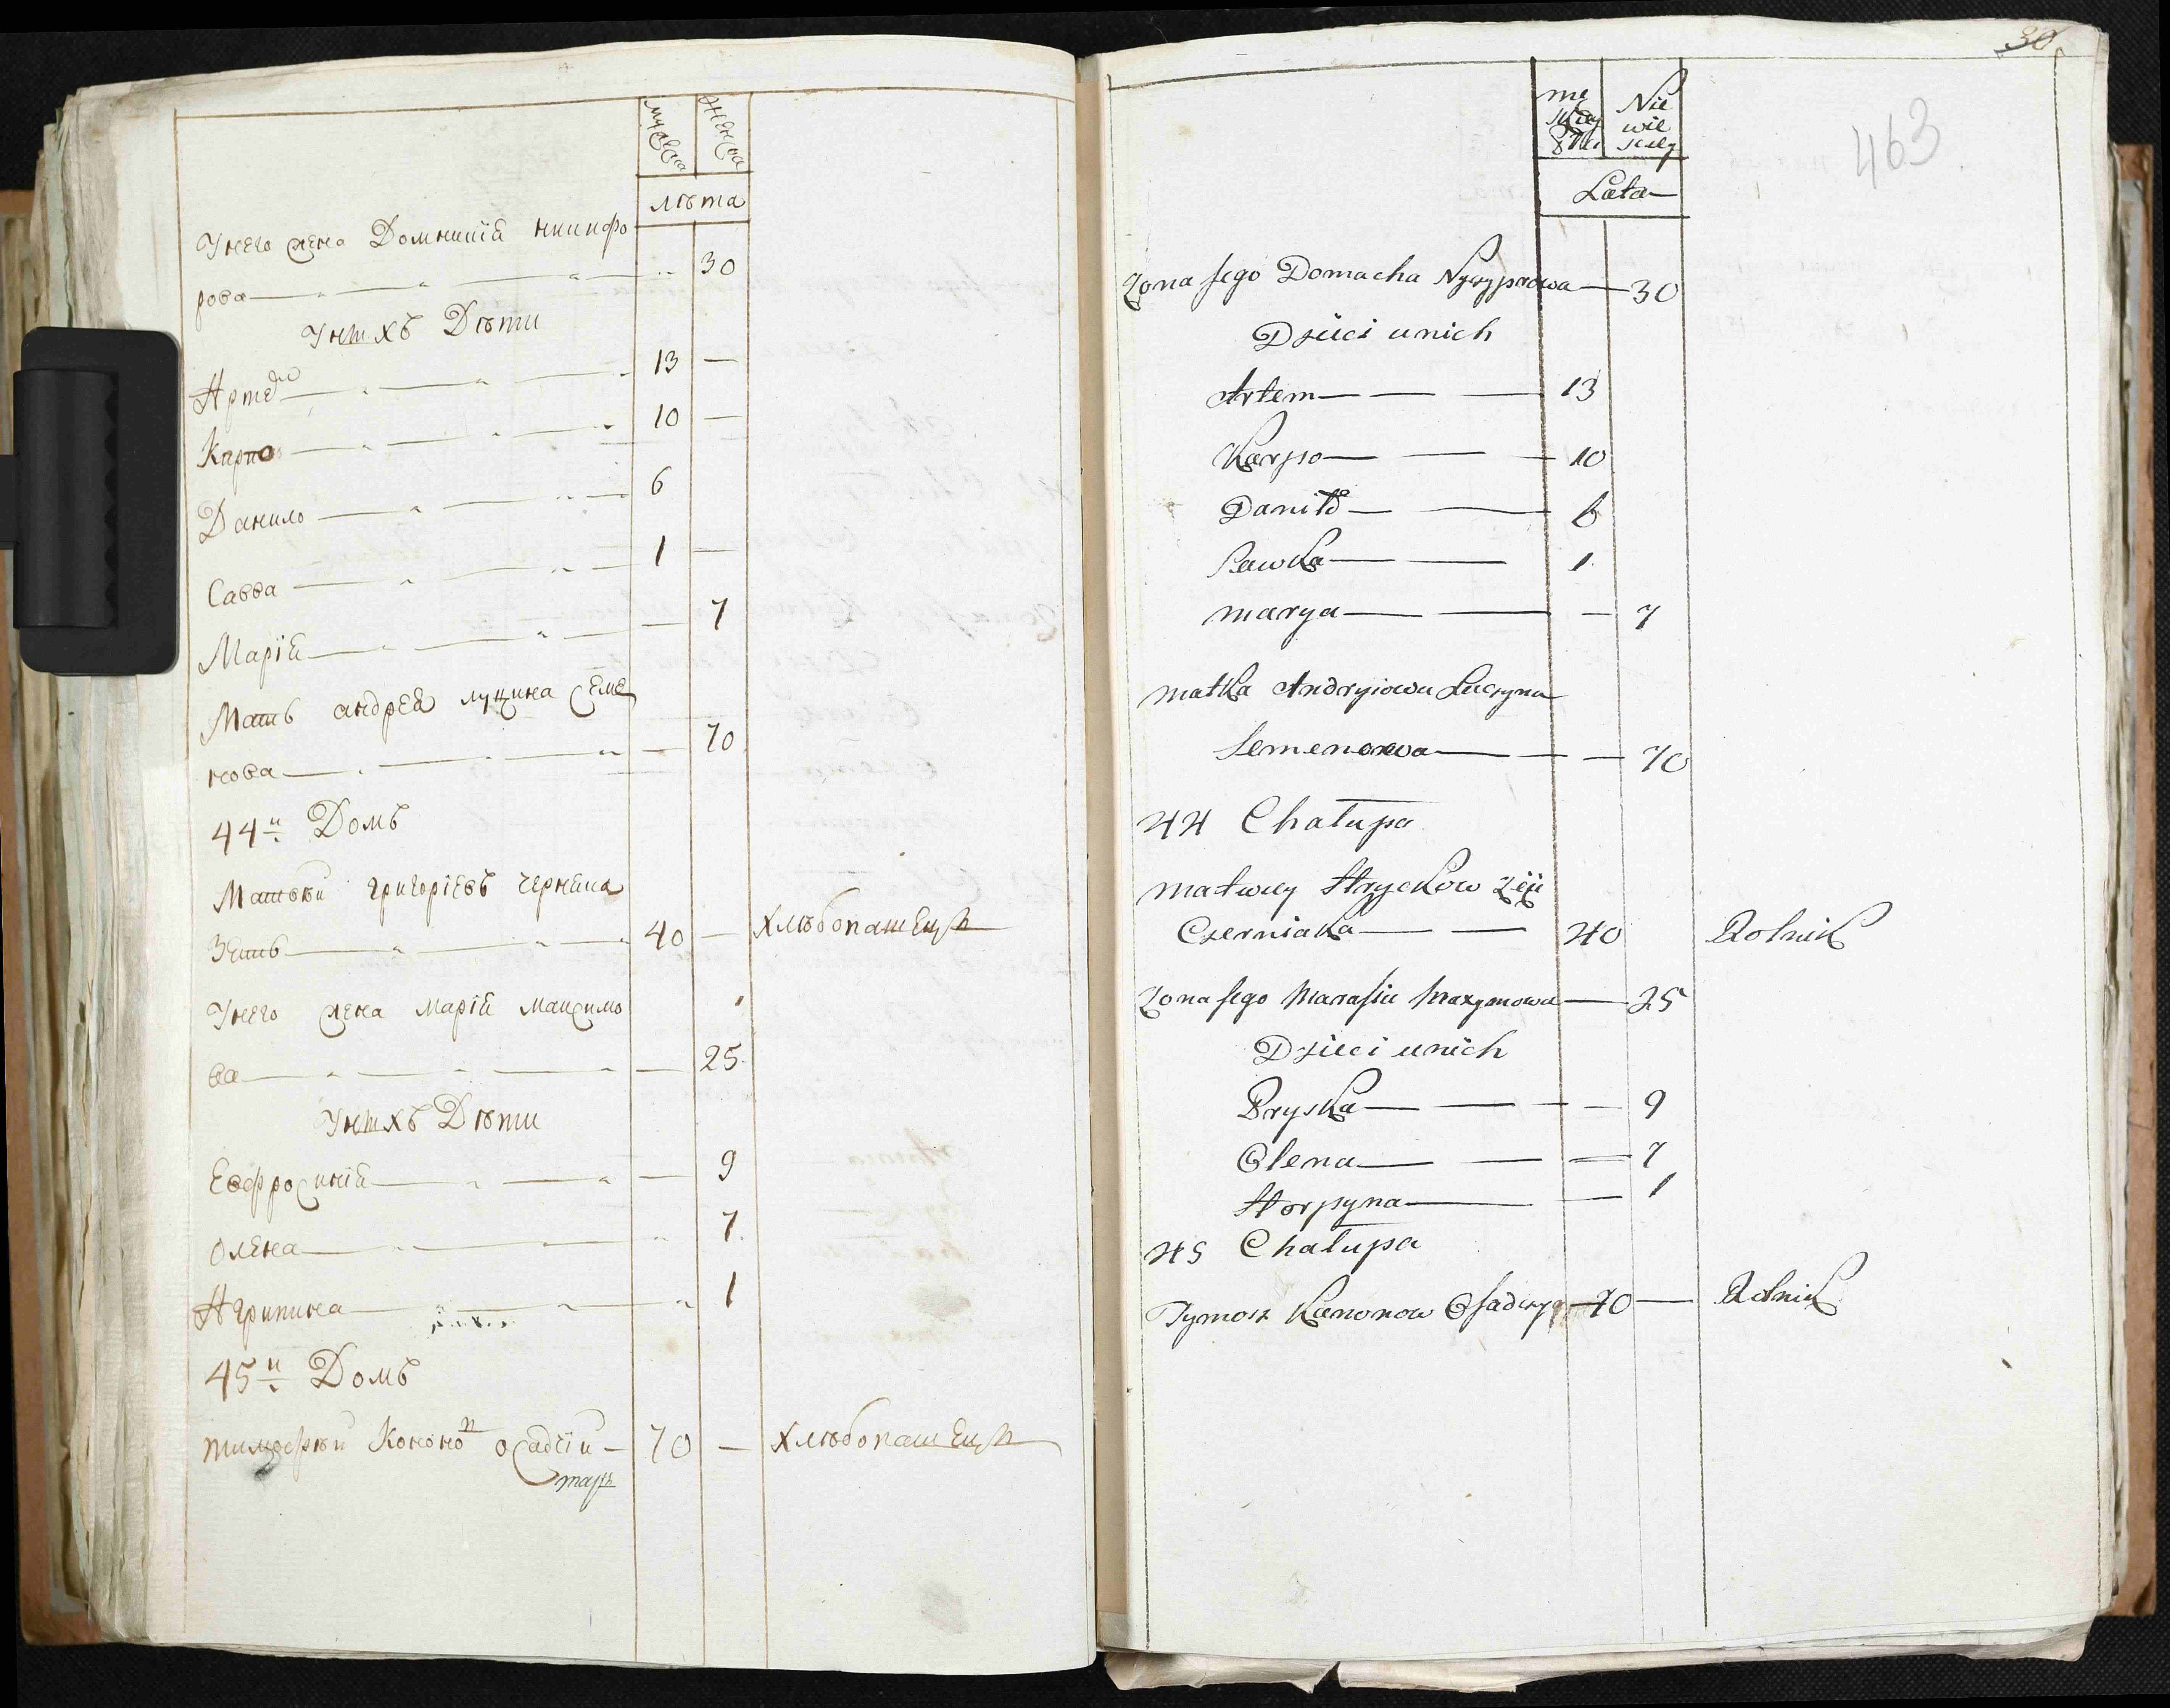 мужеска женска
лѣта
Унего жена Домникїй никифо
рова 30
Унихъ Дѣти
Артемъ 13 —
Карпо 10 —
Данило 6
Савва 1 —
Марїй — 7
Мать андрея луцина Семе
нова — 70
44й Домъ
Матвѣй григорїевъ черняка
Зять 40 — хлѣбопашецъ
Унего жена марїй максимо
ва — 25
Унихъ Дѣти
Евфросинїй — 9
Олена 7
Агрипина 1
45й Домъ
тимофѣй Кононов осадчїй 70 — хлѣбопашецъ
30
463
Nie wie sciey
Lata
Zona jego Domacha Nyczyprowa — 30
Dzieci unich
Artem — 13
Karpo — 10
Daniło — 6
Sawka — 1
marya — 7
matka Andryiowa Luczyna
Semenowa — 70
44 Chałupa
matwiey Hryckow Zięć
Czerniaka — 40 Rolnik
Zona jego Marasia Maxymowa — 25
Dzieci unich
Pryska — 9
Olena — 7
Horpyna — 1
45 Chałupa
Tymosz Kononow Osadczy 70 — Rolnik